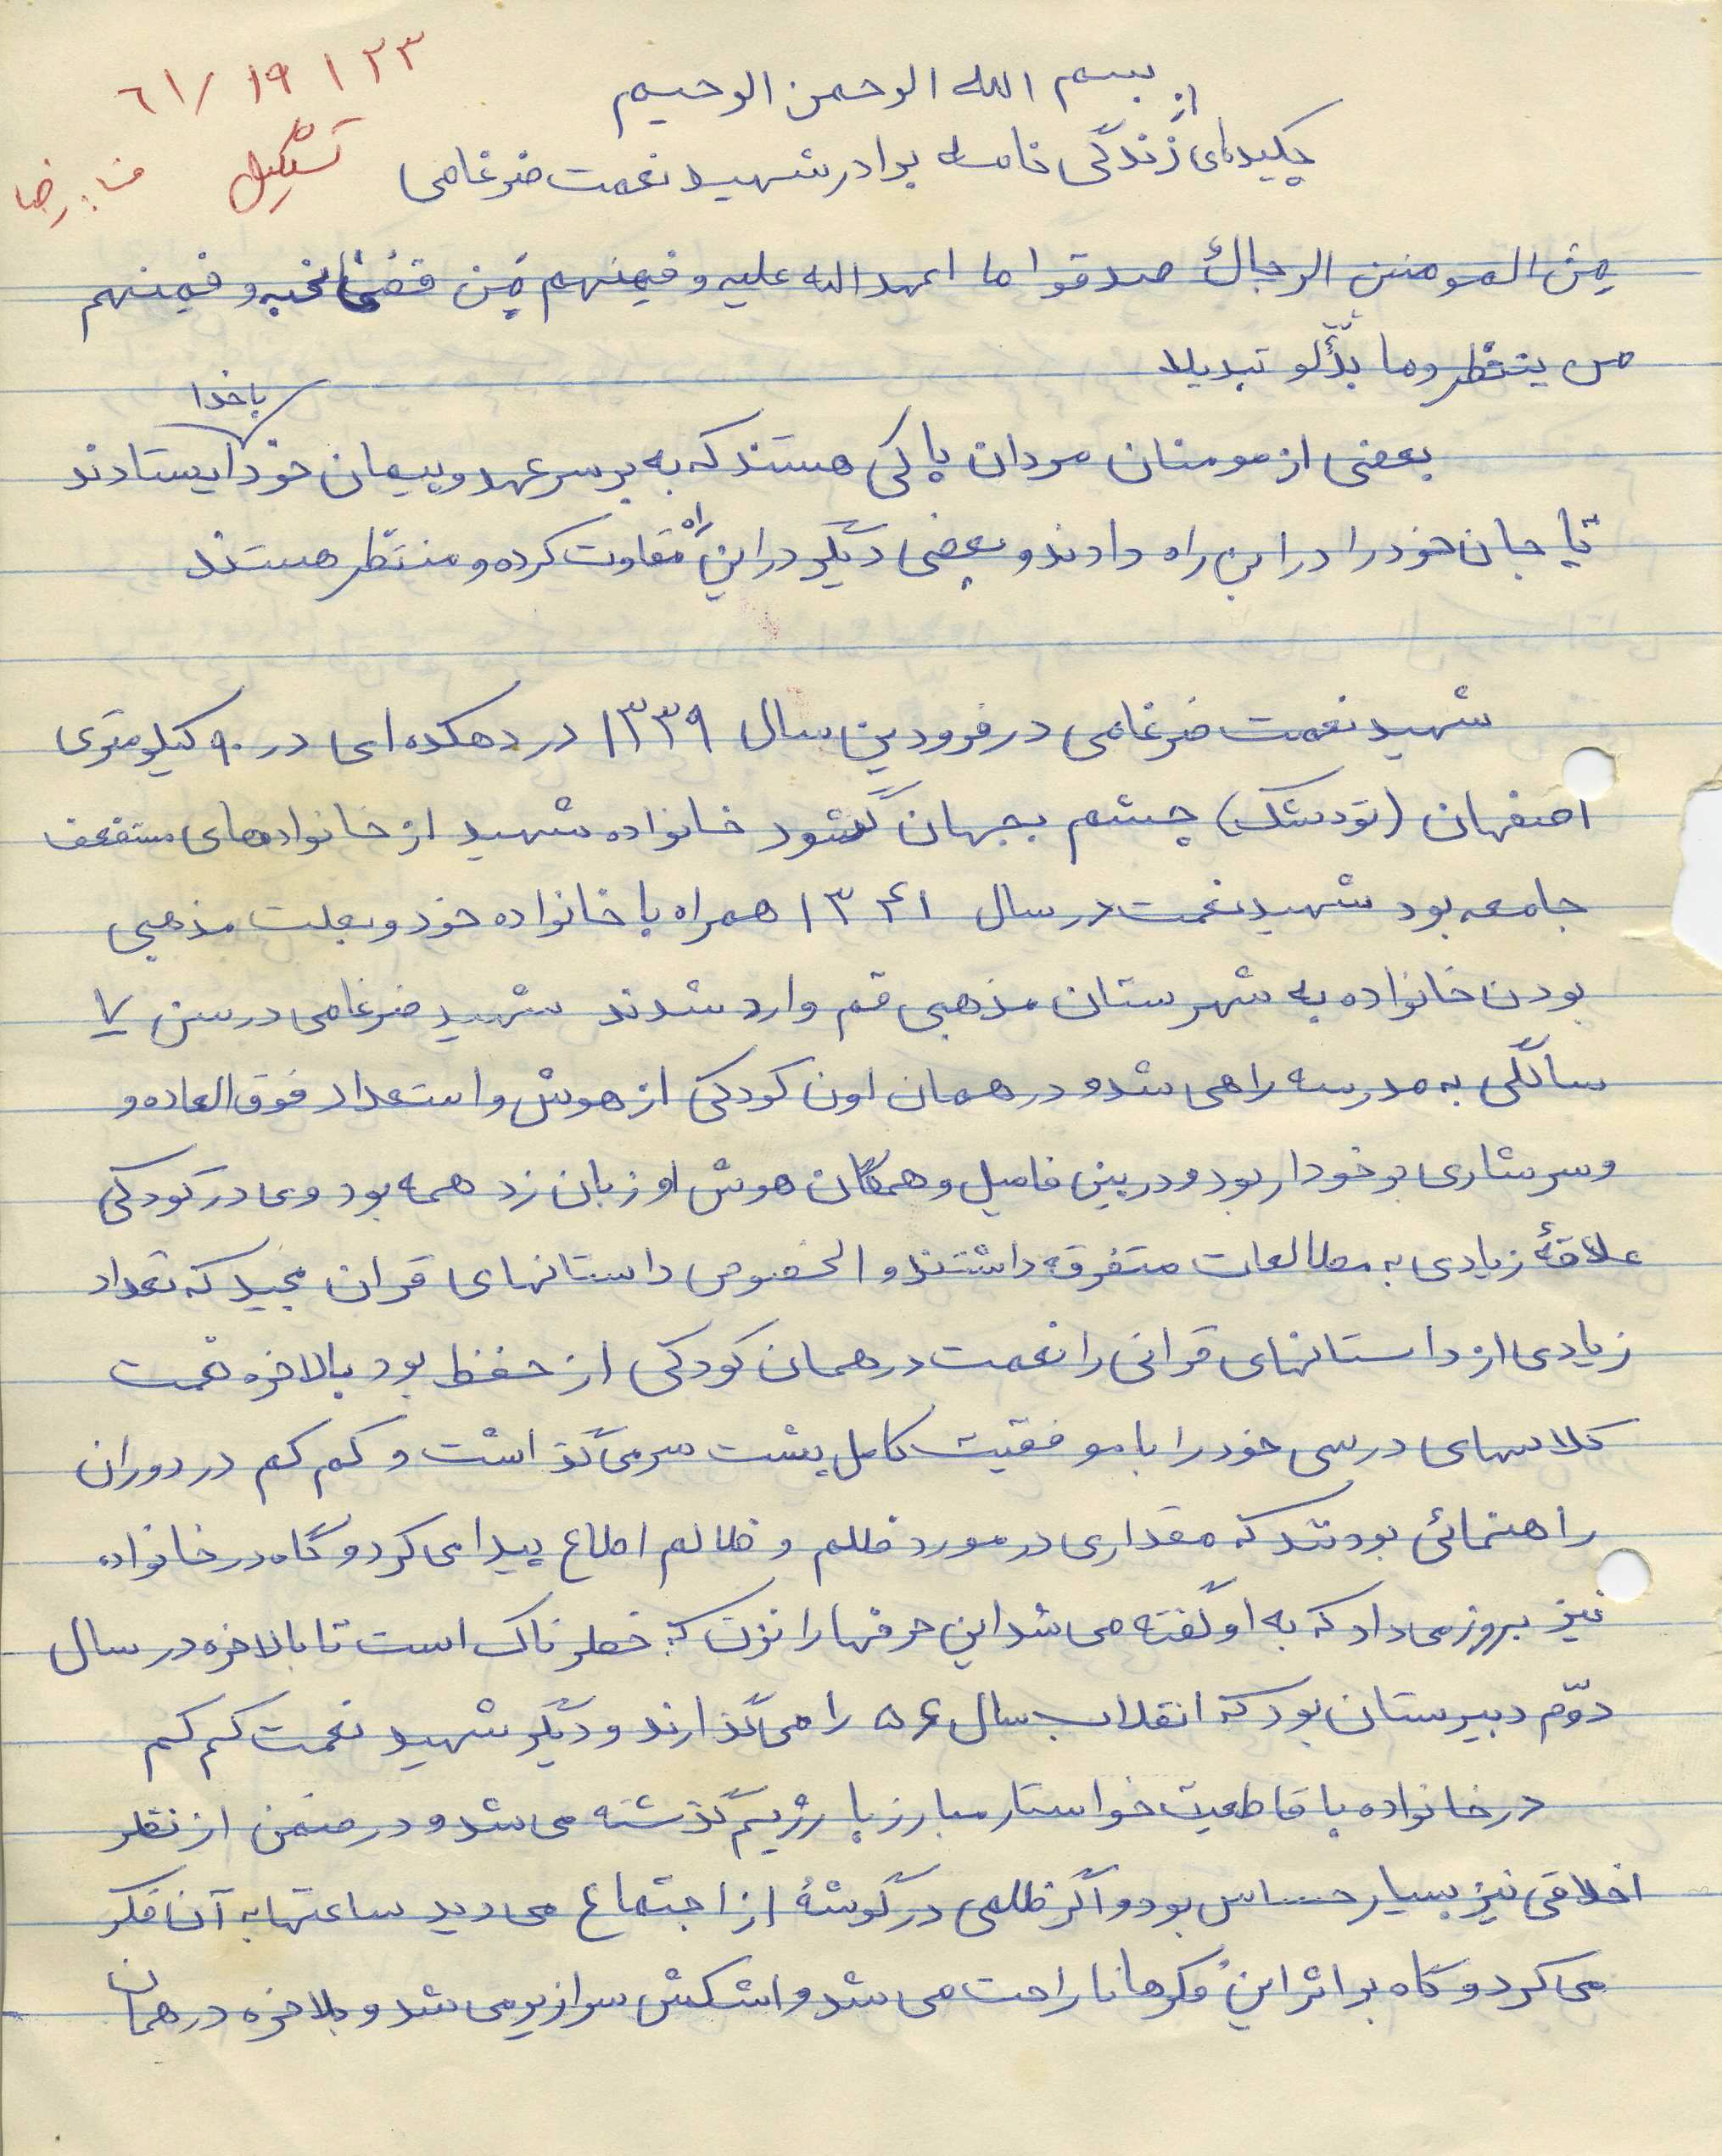 ۶۱/۱۹۱۲۳
بسم الله الرحمن الرحیم
چکیده‌ای از زندگی نامه برادر شهید نعمت ضرغامی
تشکیل
من المومنین الرجالٌ صدقوا ما اعهد الله علیه و فیمنهم مَن قضی نحبه و فیمنهم
من ینتظر و ما بدّلو تبدیلا
بعضی از مومنان مردان پاکی هستند که به بر سر عهد و پیمان خود با خدا ایستادند
تا جان خود را در این راه دادند و بعضی دیگر در این راه مقاوت کرده و منتظر هستند
شهید نعمت ضرغامی در فرودین سال ۱۳۳۹ در دهکده ای در ۹۰ کیلومتری
اصفهان (تودشک) چشم بجهان گشود خانواده شهید از خانواده‌های مستضعف
جامعه بود شهید نعمت در سال ۱۳۴۱ همراه با خانواده خود و بعلت مذهبی
بودن خانواده به شهرستان مذهبی قم وارد شدند شهید ضرغامی در سن ۷
سالگی به مدرسه راهی شد و در همان اون کودکی از هوش و استعداد فوق العاده و
و سرشاری برخودار بود و در بین فامیل و همگان هوش او زبان زد همه بود وی در کودکی
علاقهٔ زیادی به مطالعات متفرقه داشتند و الخصوص داستانهای قران مجید که تعداد
زیادی از داستانهای قرانی را نعمت در همان کودکی از حفظ بود بالاخره نعمت
کلاسهای درسی خود را با موفقیت کامل پشت سر می گذاشت و کم کم در دوران
راهنمائی بودند که مقداری در مورد ظلم و ظالم اطلاع پیدا می کرد و گاه در خانواده
نیز بروز می داد که به او گفته می شد این حرفها را نزن که خطرناک است تا بالاخره در سال
دوّم دبیرستان بود که انقلاب سال ۵۶ را می گذارند و دیگر شهید نعمت کم کم
در خانواده با قاطعیت خواستار مبارز با رژیم گذشته می شد و در ضمن از نظر
اخلاقی نیز بسیار حساس بود و اگر ظلمی در گوشهٔ از اجتماع می دید ساعتها به آن فکر
می کرد و گاه بر اثر این فکرها ناراحت می شد و اشکش سرازیر می شد و بلاخره در همان